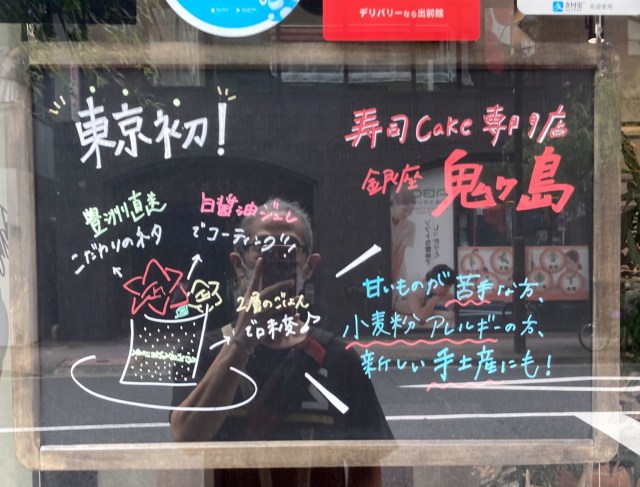 デリバリーなら出前館
支付宝
東京初!
寿司Cake専門店
銀座 鬼ヶ島
豊洲直送
こだわりのネタ
白醤油ジュレ
でコーティング!!
2層のごはん
で味変♪
甘いものが苦手な方、
小麦粉アレルギーの方、
新しい手土産にも!